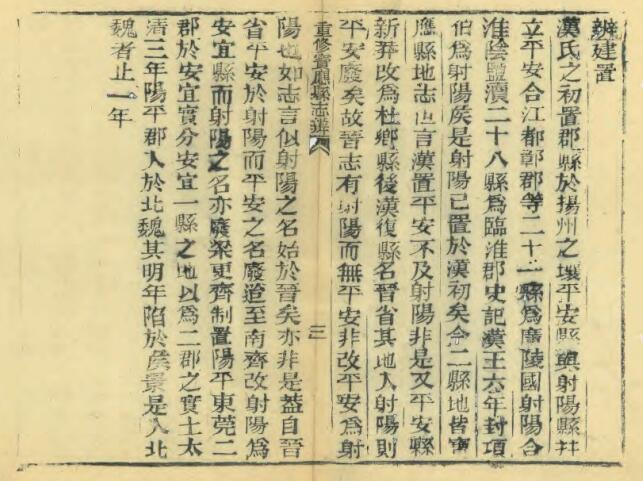 辨建置
漢氏之初置郡縣於揚州之壤平安縣與射陽縣幷
立平安合江都鄣郡等二十一縣為廣陵國射陽合
淮陰鹽瀆二十八縣為臨淮郡史記漢王六年封項
伯為射陽矦是射陽已置於漢初矣今二縣地皆寶
應縣地志也言漢置平安不及射陽非是又平安縣
新莽改為杜鄉縣後漢復縣名晉省其地入射陽則
平安廢矣故晉志有射陽而無平安非改平安為射
重修寶應縣志辨
三
陽也如志言似射陽之名始於晉矣亦非是葢自晉
省平安於射陽而平安之名廢迨至南齊改射陽為
安宜縣而射陽之名亦廢梁更齊制置陽平東莞二
郡於安宜實分安宜一縣之地以為二郡之實土太
清三年陽平郡入於北魏其明年陷於矦景是入北
魏者止一年